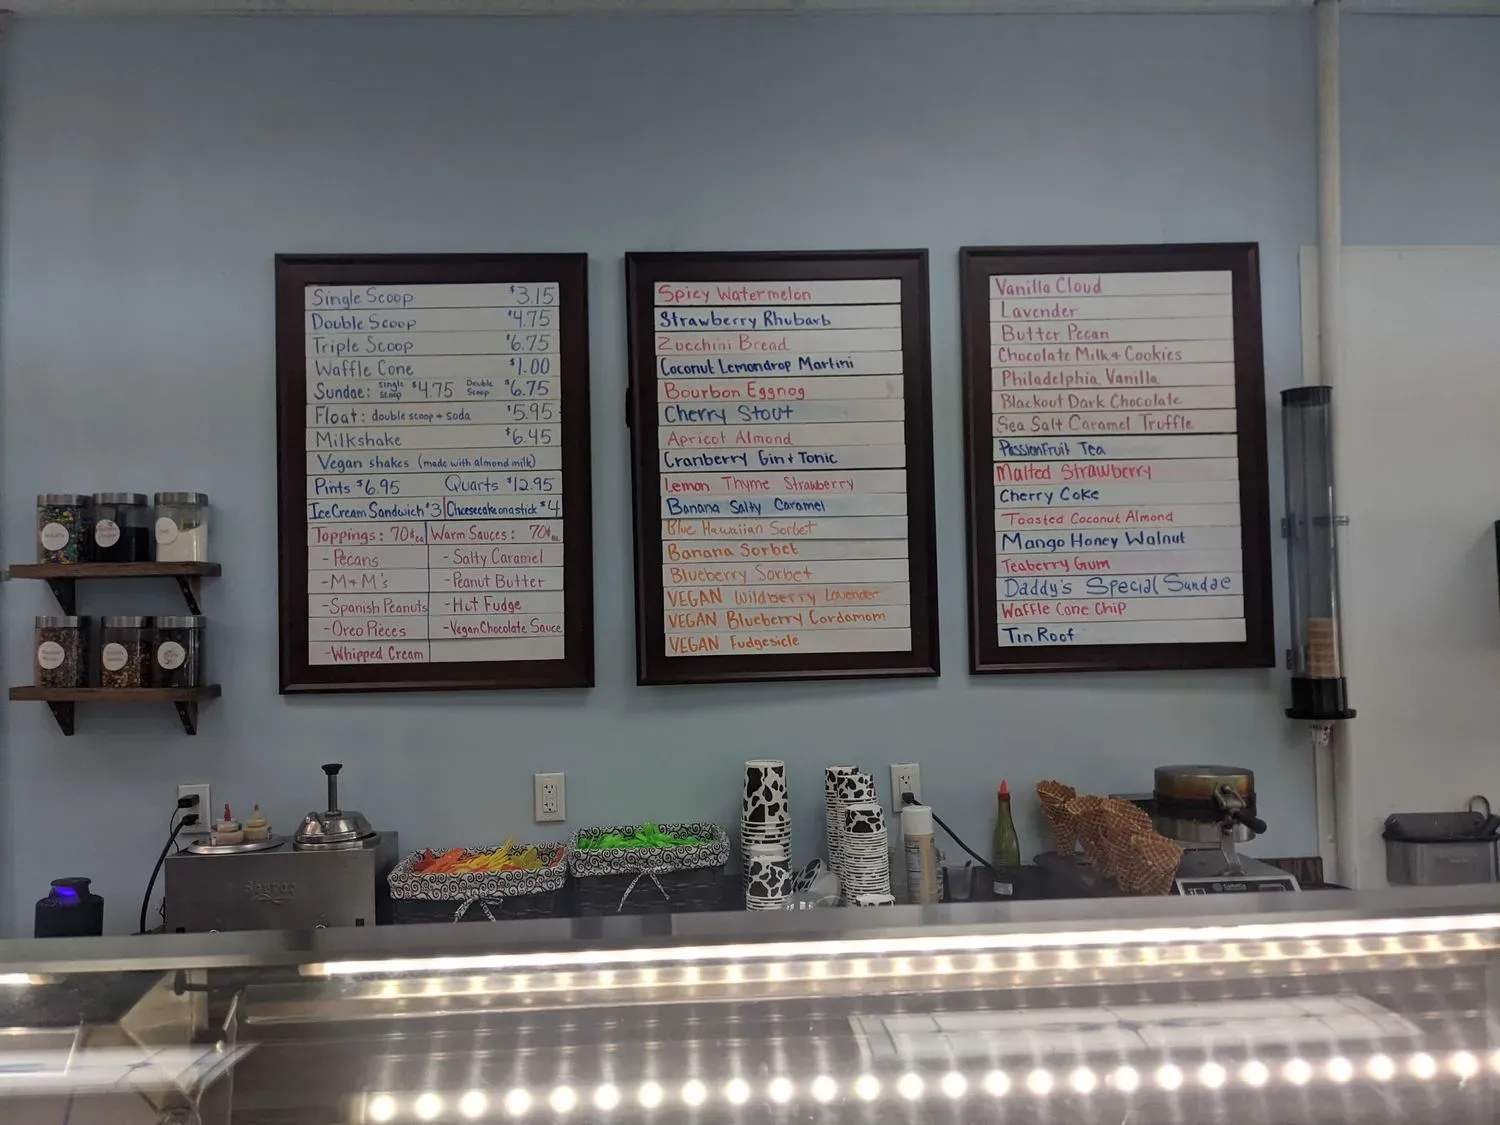 Single Scoop $3.15
Double Scoop $4.75
Triple Scoop $6.75
Waffle Cone $1.00
Sundae: Single Scoop $4.75 Double Scoop $6.75
Float: double scoop + soda $5.95
Milkshake $6.45
Vegan shakes (made with almond milk)
Pints $6.95 Quarts $12.95
Ice Cream Sandwich $3 Cheesecake on a stick $4
Toppings: 70¢ ea Warm Sauces: 70¢ ea
- Pecans - Salty Caramel
- M+M's - Peanut Butter
- Spanish Peanuts - Hot Fudge
- Oreo Pieces - Vegan Chocolate Sauce
- Whipped Cream
Spicy Watermelon
Strawberry Rhubarb
Zucchini Bread
Coconut Lemondrop Martini
Bourbon Eggnog
Cherry Stout
Apricot Almond
Cranberry Gin + Tonic
Lemon Thyme Strawberry
Banana Salty Caramel
Blue Hawaiian Sorbet
Banana Sorbet
Blueberry Sorbet
VEGAN Wildberry Lavender
VEGAN Blueberry Cardamom
VEGAN Fudgesicle
Vanilla Cloud
Lavender
Butter Pecan
Chocolate Milk + Cookies
Philadelphia Vanilla
Blackout Dark Chocolate
Sea Salt Caramel Truffle
Passionfruit Tea
Malted Strawberry
Cherry Coke
Toasted Coconut Almond
Mango Honey Walnut
Teaberry Gum
Daddy's Special Sundae
Waffle Cone Chip
Tin Roof